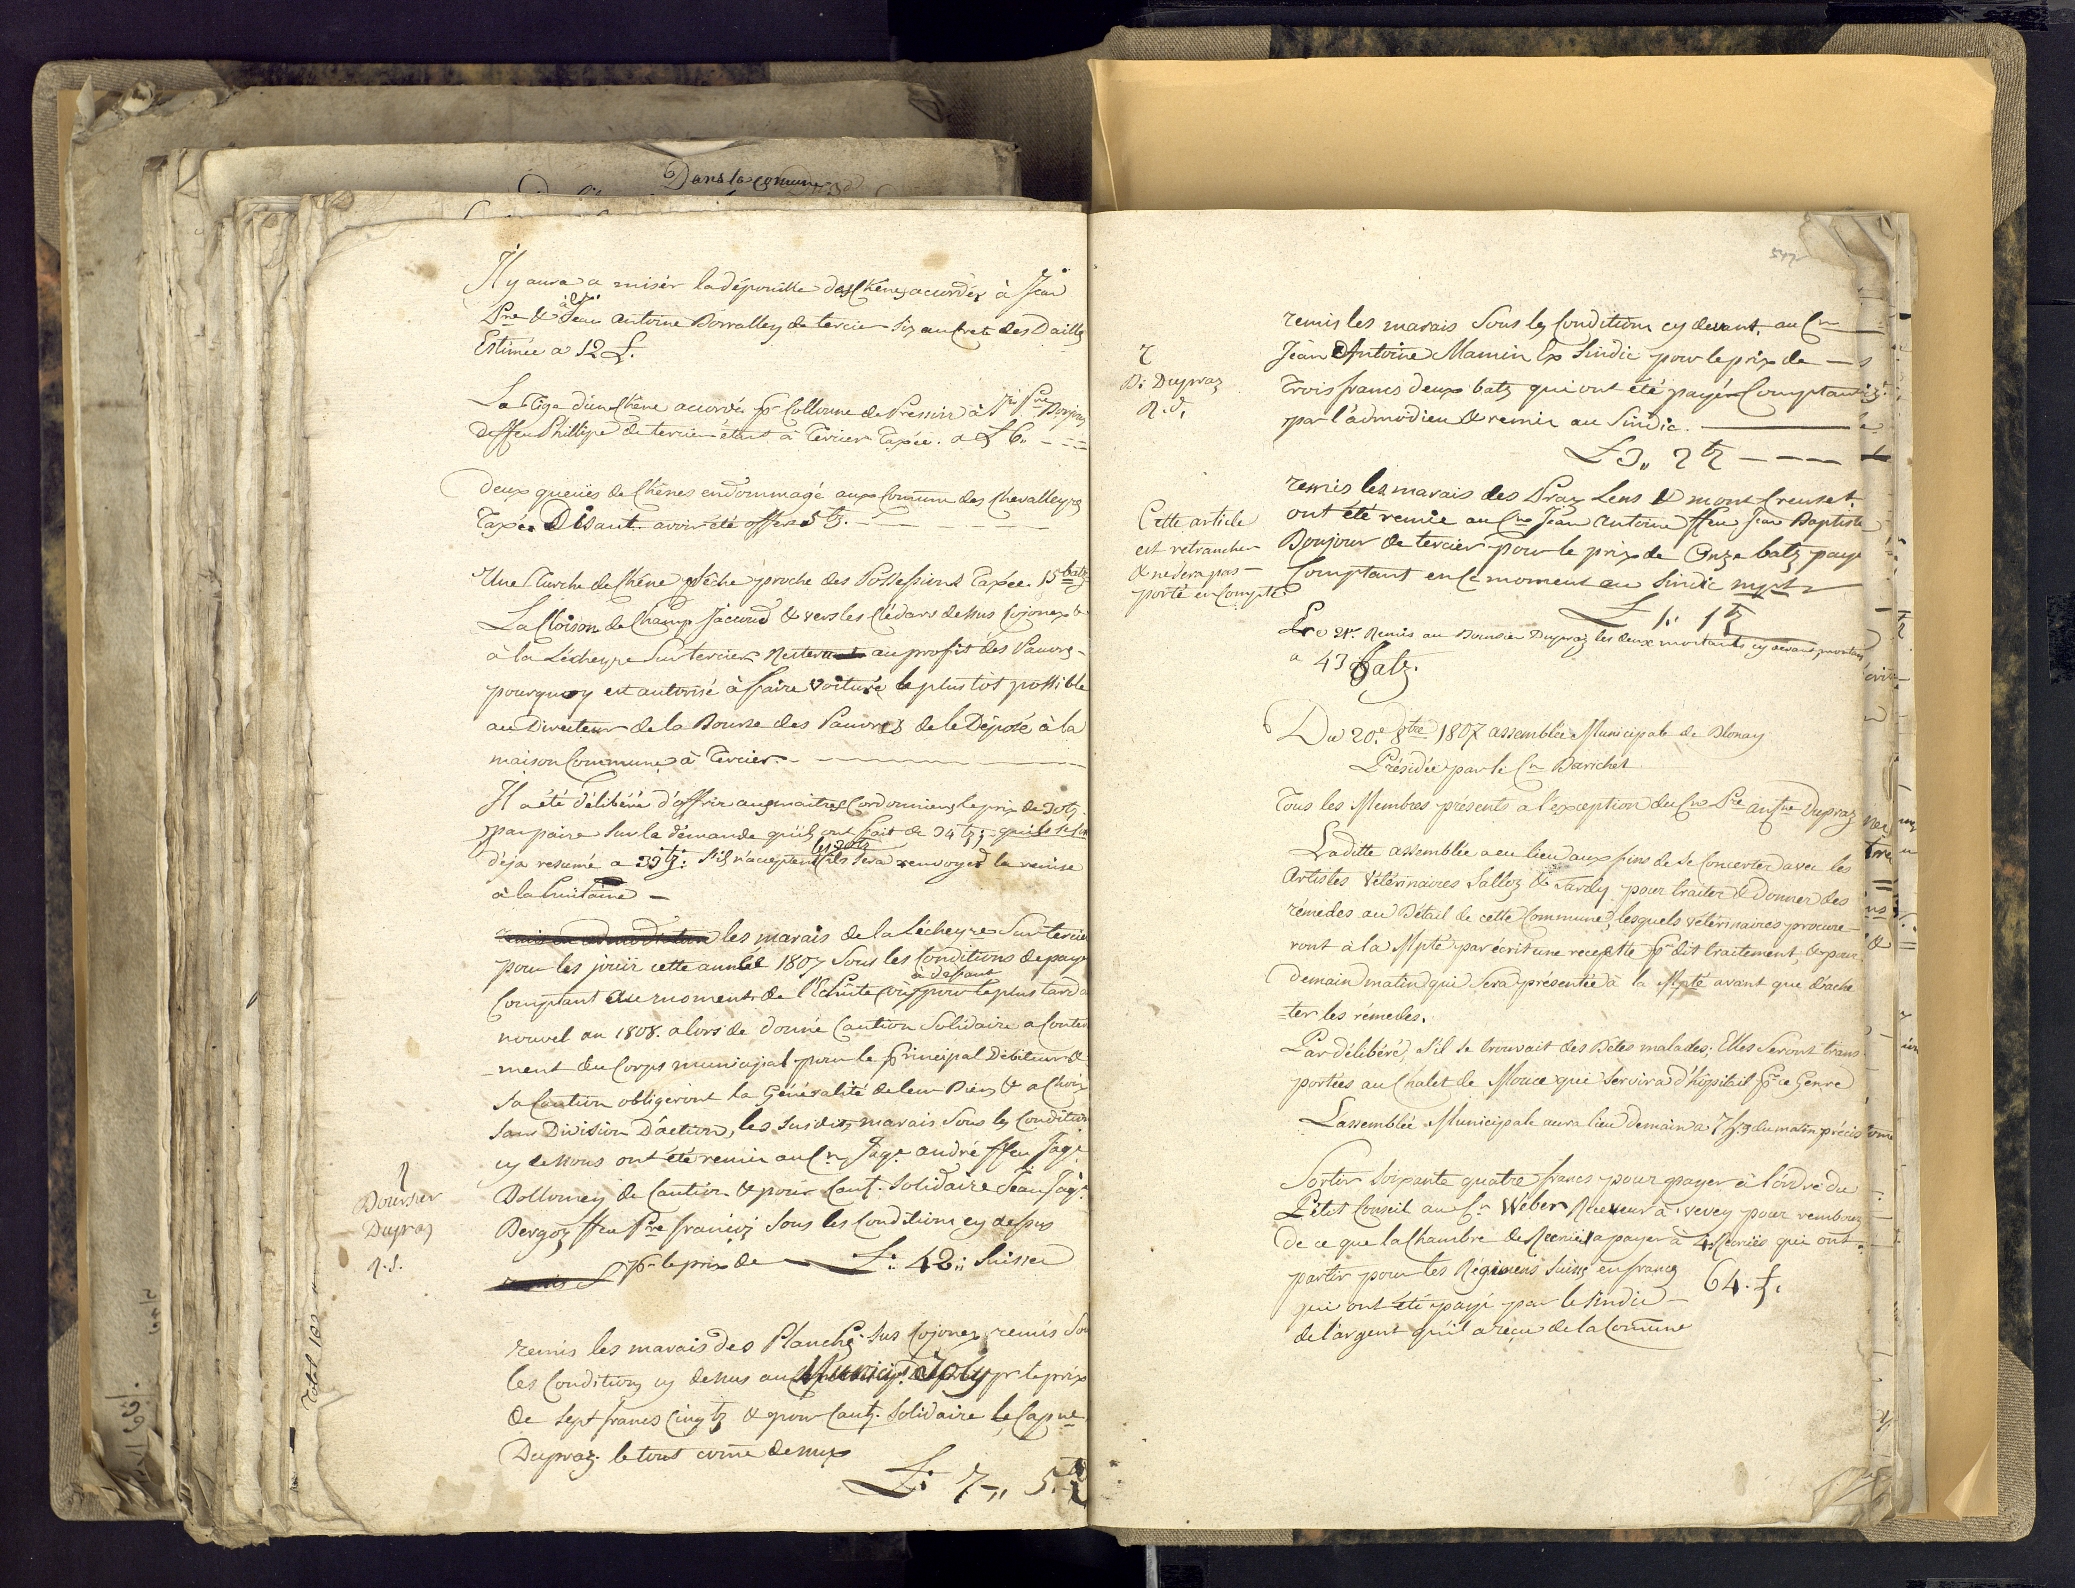 Dans la comune
Il y aura a misér la dépouille des Chênes accordés à Jean
Pre & à Jean Antoine Bonvalley de tercier Sis au Cret des Dailles
Estimée a 12 £.
La Tige d'un Chêne accordés pr Collonne de Pressoir à Jn Pre Bonjour
deffeu Phillipe de tercier étant à Tercier Taxée. a £ 6„
Deux queuës de Chênes endommagé aux Comun des Chevalleyres
Taxée Disant avoir été offert 5 bz.
Une Turche de Chêne sêche proche des Possessions Taxée. 15 batz
La Cloison de Champ Jaccoud & vers les Clédars dessus Cojonex &
à la Lécheyre Sur tercier Restera au profit des Pauvres
pourquoy est autorisé à faire voiturér le plus tôt possible
au Directeur de la Bourse des Pauvres de le Déposé à la
maison Commune à Tercier.
Il a été délibéré d'offrir aux maitres Cordonniers le prix de 30 bz
par paire Sur la démande qu'ils ont fait de 34 bz;
déja resumé a 32 bz: S'il n'acceptent les 30 bz ils sera renvoyer la remise
à la huitaine
les marais de la Lécheyre Sur tercier
pour les jouir cette année 1807 Sous les Conditions de payer
Comptant au moment de l'Echûte ou à defaut pour le plus tard a
nouvel an 1808. alors de donné Caution Solidaire a Conten
ment du Corps municipal pour le principal Débiteur &
Sa Caution obligeront la Généralité de leur Biens & a Choix
Sans Division D'action, les Susdits marais Sous les Condition
cy dessous ont été remis au Cn Jaqs andré ffeu Jaqs
Dollomey de Caution & pour Caut. Solidaire Jean Jaqs
Bergoz ffeu Pre francois Sous les Conditions cy dessus
pr le prix de £: 42„ Suisses
Boursier
Dupraz
R.S.
remis les marais des Planche Sus Cojonex remis Sou
les Conditions cy dessus au Municip. Joly pr le prix
de Sept francs Cinq bz & pour Caut. Solidaire le Capne
Dupraz le tout come dessus
£: 7„ 5 bz
Total 100
547
remis les marais Sous les Conditions cy devant au Cn
Jean Antoine Mamin Ex Sindic pour le prix de
trois francs deux batz qui ont été payér Comptant
par l'admodieu & remis au Sindic.
£ 3„ 2 bz
B: Dupraz
R.S.
remis les marais des Praz Lens & mont Creuset
ont été remis au Cn Jean Antoine ffeu Jean Baptiste
Bonjour de tercier pour le prix de Onze batz payé
Comptant en ce moment au Sindic mpt
£ 1„ 1 bz
Cette article
est retrancher
& ne sera pas
porté en Compte
Le 21e Remis au Boursier Dupraz les deux montants cy devant montant
a 43 batz.
Du 20e 8bre 1807 assemblée Municipale de Blonay
Présidée par le Cn Barichet
Tous les Membres présents a l'exception du Cn Pre antne Dupraz
Ladite assemblée a eu lieu aux fins de se Concerter avec les
Artistes Vétérinaires Salloz & Tardy pour traiter & donner des
rémedes au Bétail de cette Commune, lesquels vétérinaires procure-
ront à la Mpté par écrit une recepte pr dit traitement, & pour
demain matin qui Sera présentée à la Mpté avant que d'ache
ter les rémedes.
Par délibéré, S'il se trouvait des Bêtes malades: Elles Seront trans
portées au Chalet de Mouce qui Servira d'hôpital pr ce Genre
L'assemblée Municipale aura lieu demain a 7 h. du matin précis
Sortir Soixante quatre francs pour payer à l'ordre du
Pétit Conseil au Cn Weber Receveur à vevey pour rembours
de ce que la Chambre de Recrues a payer à 4 Recruës qui ont
partir pour les Régimens Suisse en france 64. £.
qui ont été payé par le Sindic
de l'argent qu'il a reçu de la Comune